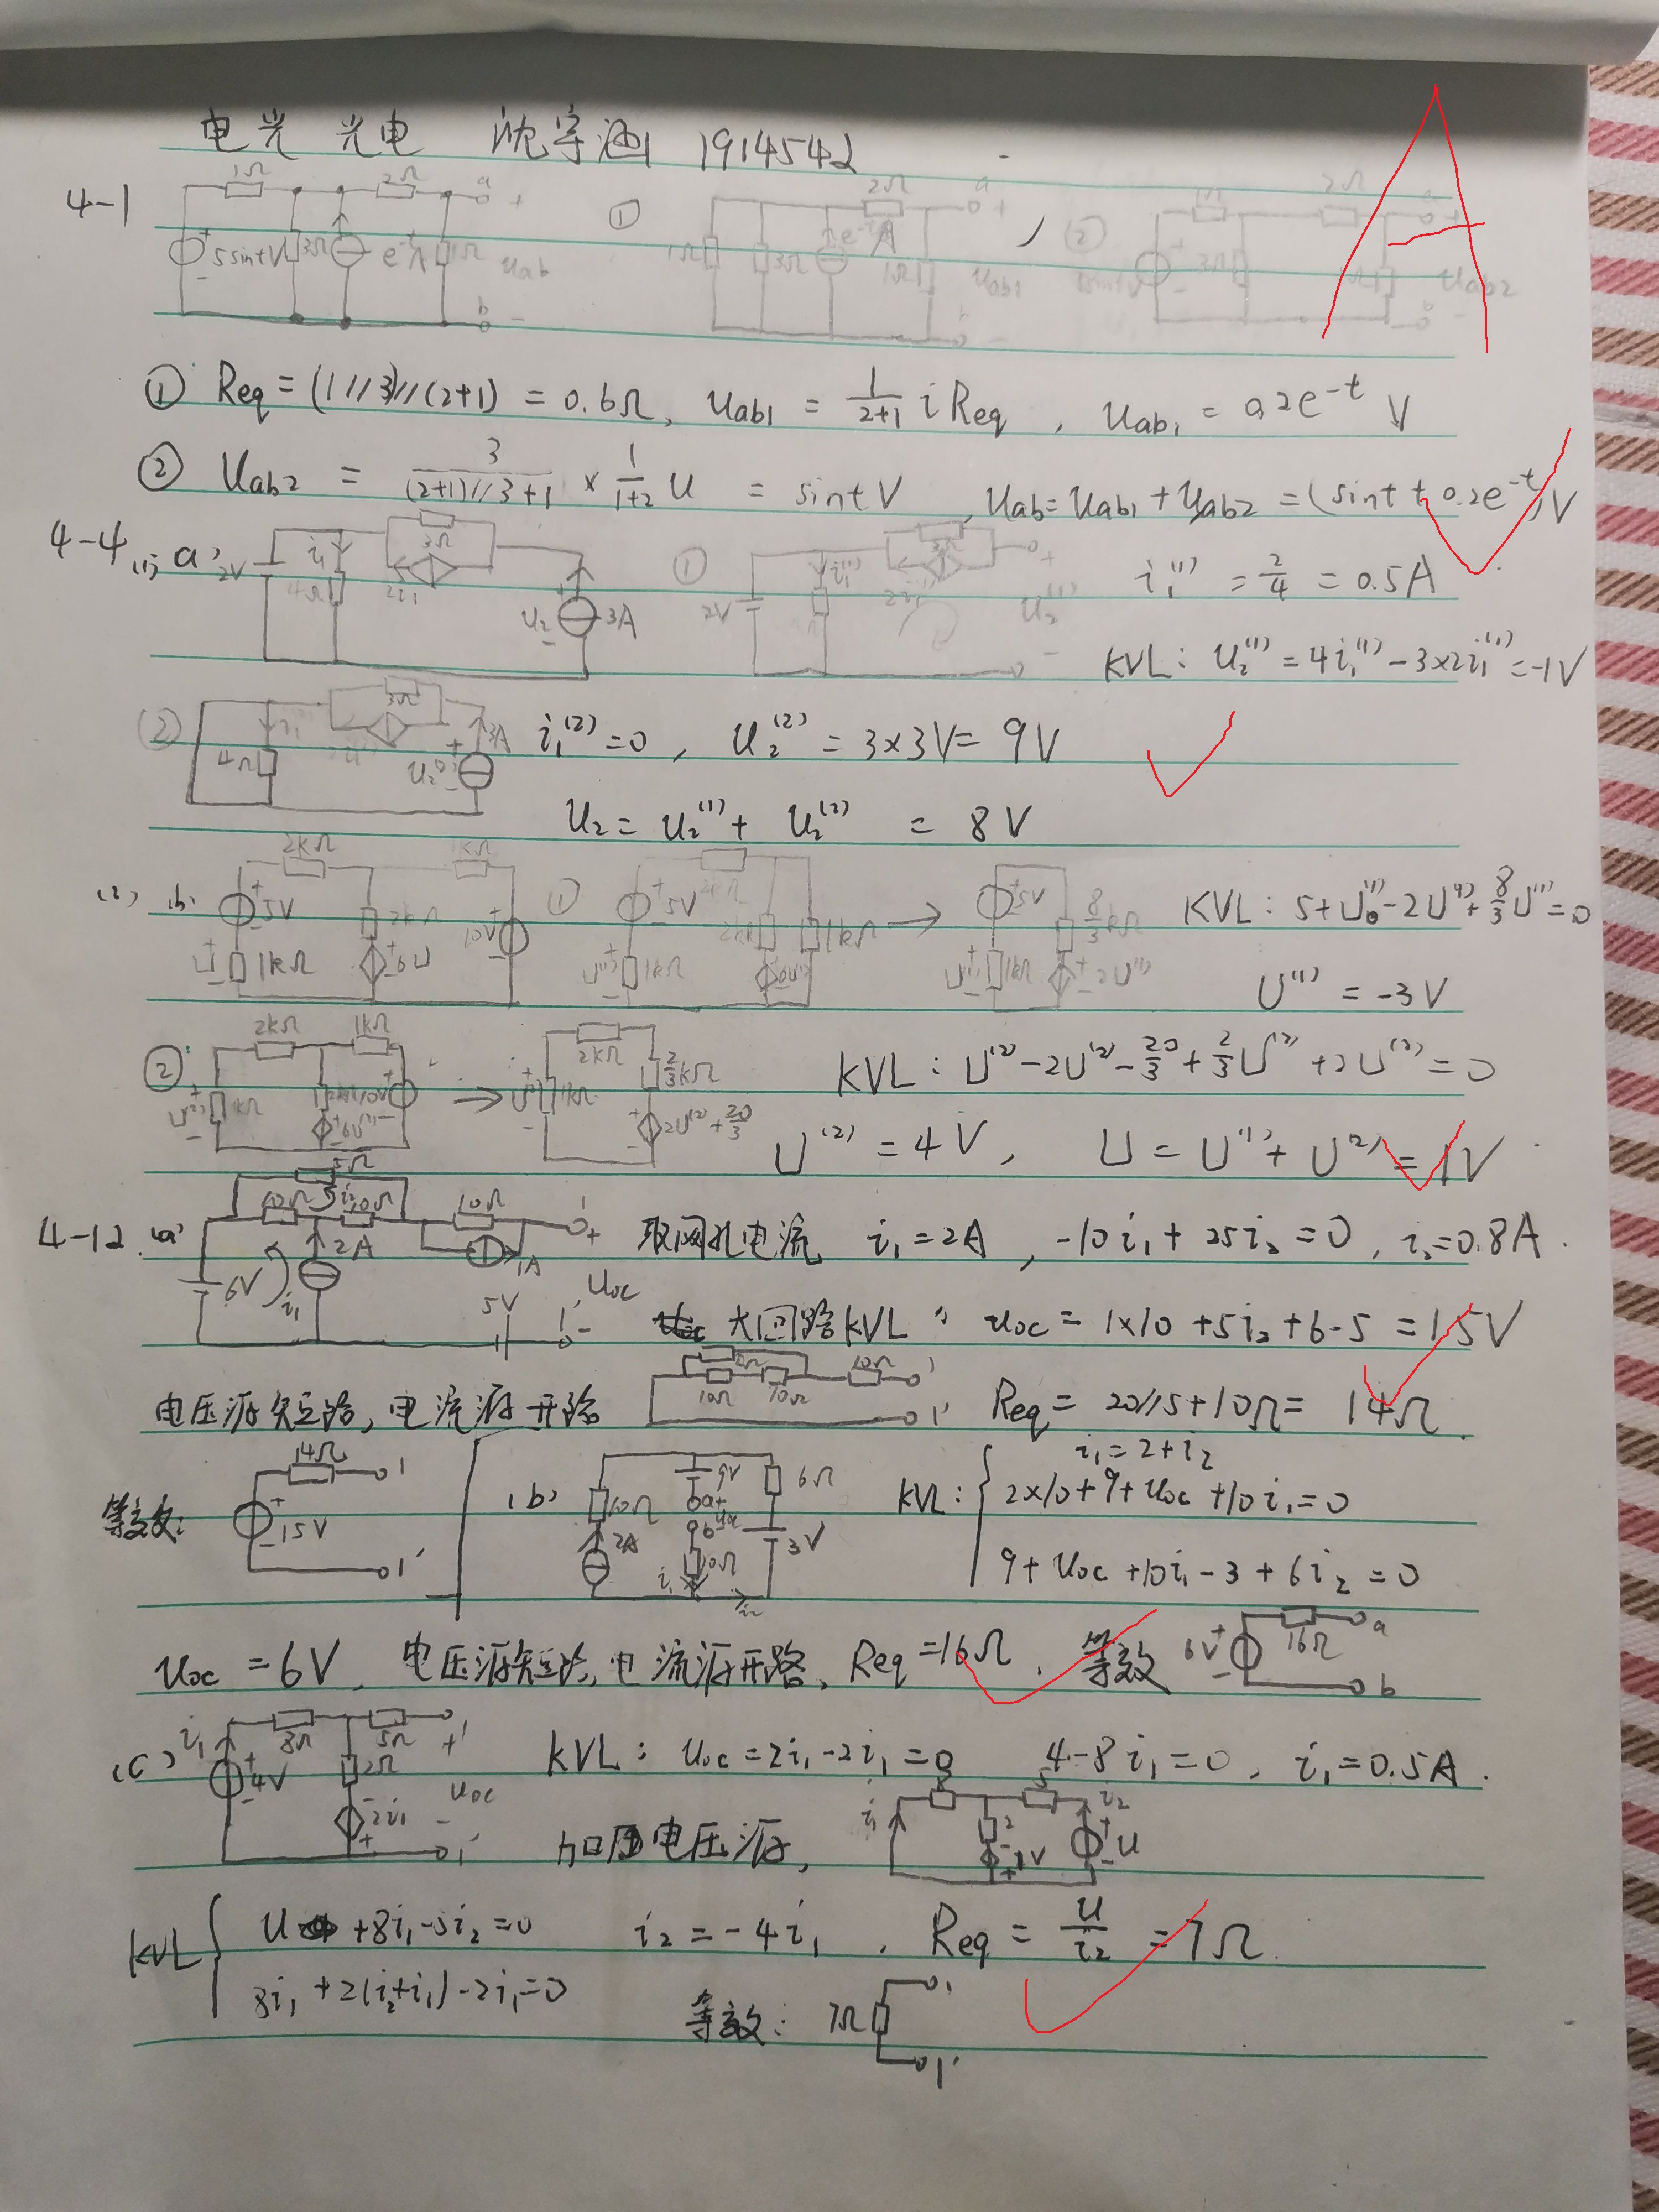 电光 光电 沈宇涵 1914542
4-1 1Ω 2Ω a + 5sintV 3Ω e⁻ᵗA 1Ω uab b - ① 2Ω a + 1Ω 3Ω e⁻ᵗA 1Ω uab1 b - ② 1Ω 2Ω a + 3Ω 1Ω uab2 b -
① Req = (1//3)//(2+1) = 0.6Ω, uab1 = 1/(2+1) i Req, uab1 = 0.2e⁻ᵗ V
② Uab2 = 3/((2+1)//3+1) × 1/(1+2) U = sint V, uab = uab1 + uab2 = (sint + 0.2e⁻ᵗ)V
4-4 (1) a) 2V i₁ 4Ω 3Ω 2i₁ u₂ 3A ① 2V i₁⁽¹⁾ 3Ω 2i₁⁽¹⁾ u₂⁽¹⁾ i₁⁽¹⁾ = 2/4 = 0.5A
KVL: u₂⁽¹⁾ = 4i₁⁽¹⁾ - 3×2i₁⁽¹⁾ = -1V
② 4Ω 3Ω 3A u₂⁽²⁾ i₁⁽²⁾ = 0, u₂⁽²⁾ = 3×3V = 9V
u₂ = u₂⁽¹⁾ + u₂⁽²⁾ = 8V
(2) (b) 2kΩ 1kΩ 5V 2kΩ 10V U 1kΩ 6U ① 2kΩ 5V 2kΩ 1kΩ U⁽¹⁾ 1kΩ 6U⁽¹⁾ → 5V 8/3kΩ U⁽¹⁾ 1kΩ 2U⁽¹⁾ KVL: 5+U⁽¹⁾-2U⁽¹⁾+8/3U⁽¹⁾=0
U⁽¹⁾ = -3V
② 2kΩ 1kΩ U⁽²⁾ 1kΩ 2kΩ 10V 6U⁽²⁾ → 2kΩ 2/3kΩ U⁽²⁾ 1kΩ 2U⁽²⁾+20/3 KVL: U⁽²⁾-2U⁽²⁾-20/3+2/3U⁽²⁾+2U⁽²⁾=0
U⁽²⁾ = 4V, U = U⁽¹⁾ + U⁽²⁾ = 1V
4-12 (a) 5Ω 10Ω i₂ 10Ω 10Ω 1 + 2A 1A 6V i₁ 5V uoc 1' - 取网孔电流 i₁=2A, -10i₁+25i₂=0, i₂=0.8A.
大回路KVL: uoc = 1×10+5i₂+6-5 = 15V
电压源短路,电流源开路 10Ω 10Ω 10Ω 1 1' Req = 20//5+10Ω = 14Ω.
等效: 14Ω 1 15V 1' (b) 10Ω 2A 9V a+ b- uoc 10Ω i₁ i₂ 6Ω 3V KVL: { i₁=2+i₂
2×10+9+uoc+10i₁=0
9+uoc+10i₁-3+6i₂=0
uoc = 6V, 电压源短路,电流源开路, Req=16Ω, 等效 6V 16Ω a b
(c) i₁ 8Ω 5Ω 1 + 4V 2Ω 2i₁ uoc - 1' KVL: uoc=2i₁-2i₁=0 4-8i₁=0, i₁=0.5A.
加电压源, i₁ 8 5 i₂ 2 U
KVL { u+8i₁-5i₂=0 i₂=-4i₁, Req = u/i₂ = 7Ω.
8i₁+2(i₂+i₁)-2i₁=0 等效: 7Ω 1 1'
A